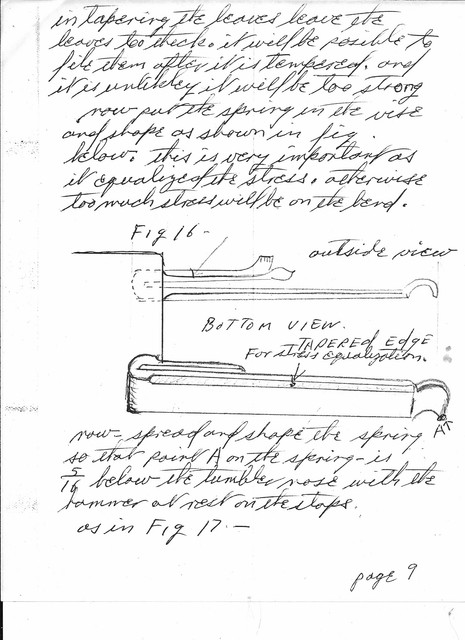 in tapering the leaves leave the
leaves too thick. it will be posible to
file them after it is tempered. and
it is unlikely it will be too strong
now put the spring in the vise
and shape as shown in fig.
below. this is very important as
it equalized the stress. otherwise
too much stress will be on the bend.
Fig 16 -
outside view
BOTTOM VIEW.
TAPERED EDGE
For stress equalization.
A↑
now - spread and shape the spring
so that point A on the spring - is
5/16 below the tumbler nose with the
hammer at rest on the stops.
as in Fig 17. -
page 9